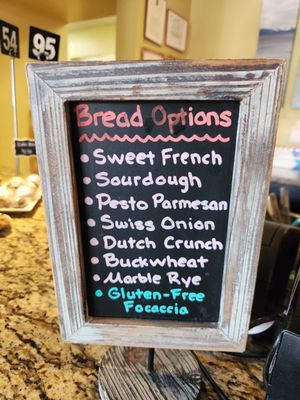 54
95
Bread Options
• Sweet French
• Sourdough
• Pesto Parmesan
• Swiss Onion
• Dutch Crunch
• Buckwheat
• Marble Rye
• Gluten-Free
Focaccia